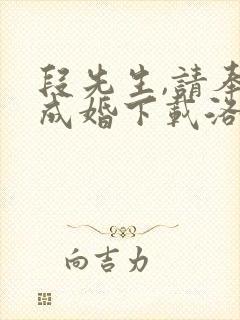 段先生,請奉
成婚下載洛
向吉力